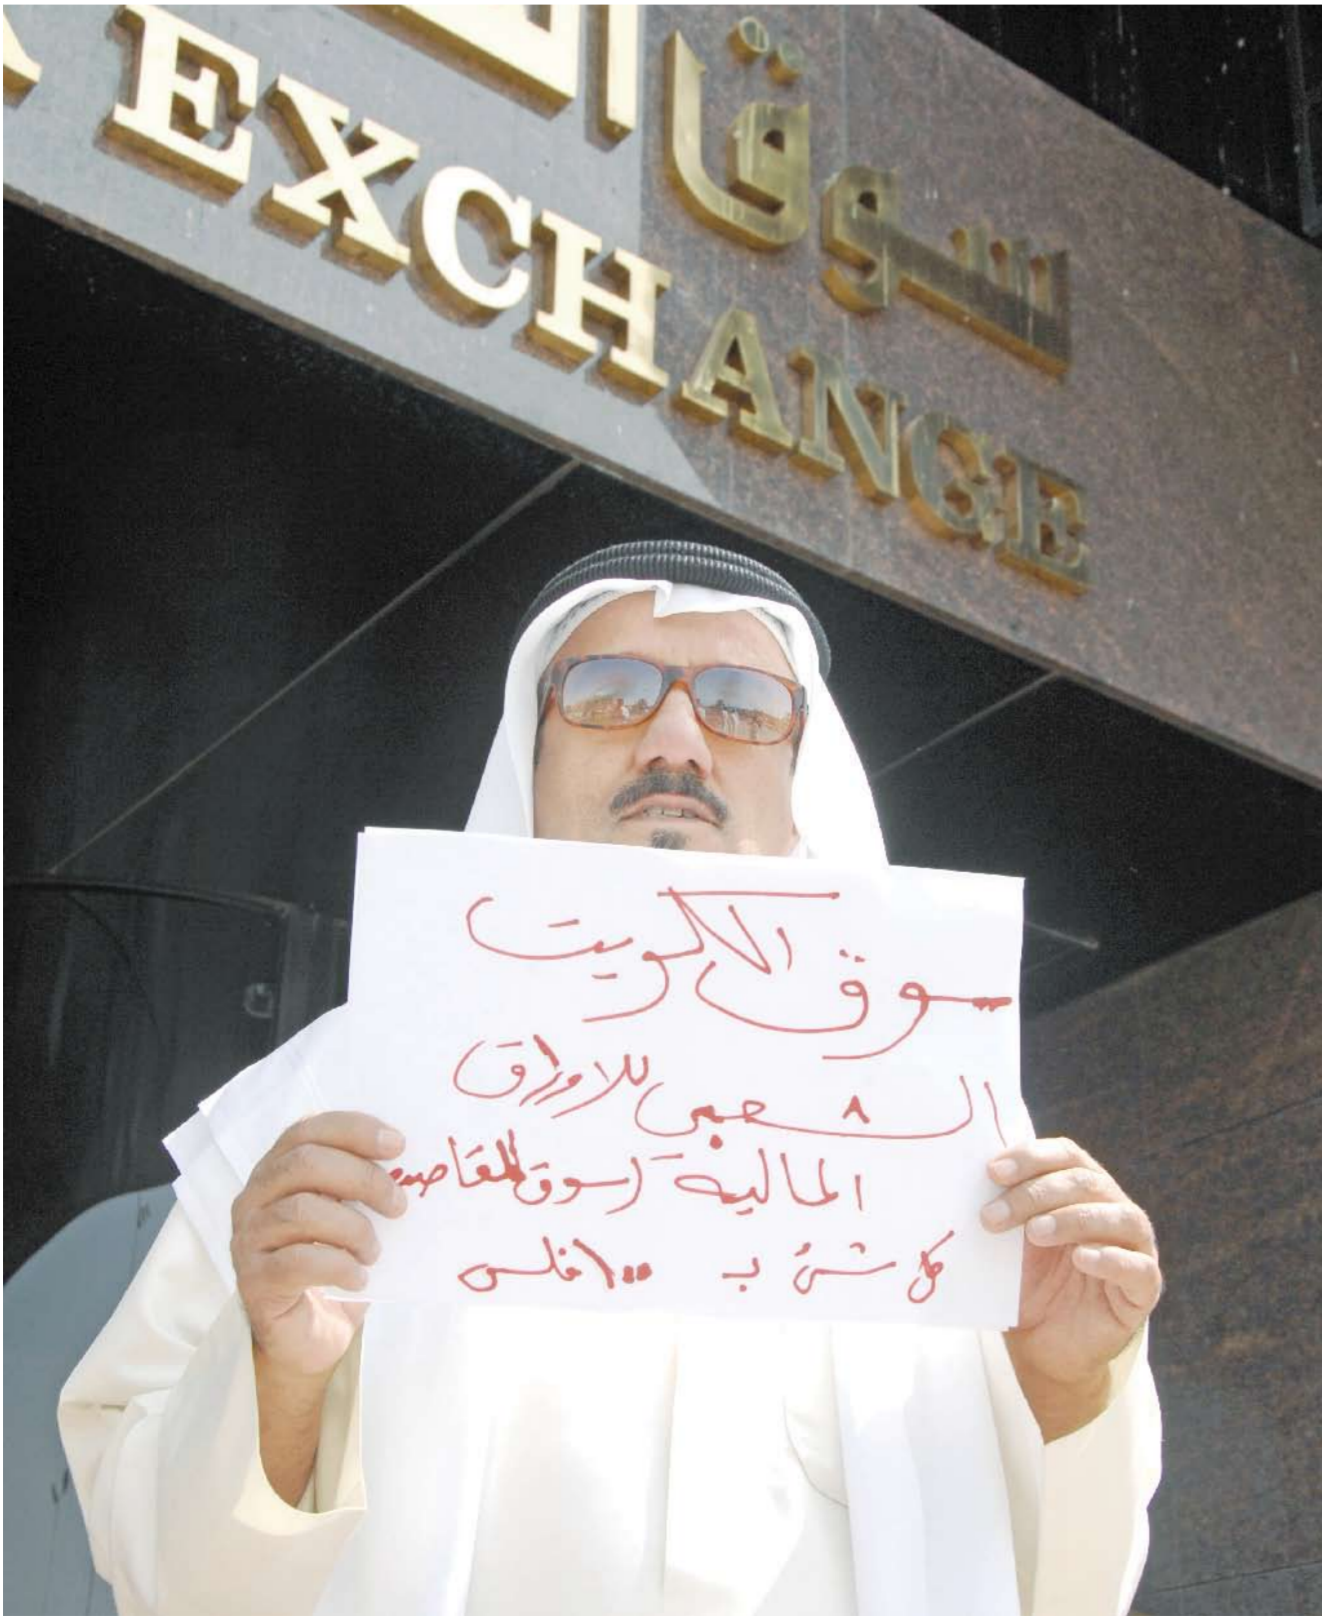 سوق ال
EXCHANGE
سوق الكويت
الشعبي للاوراق
المالية (سوق المقاصيص
كل شئ ب ١٠٠ فلس